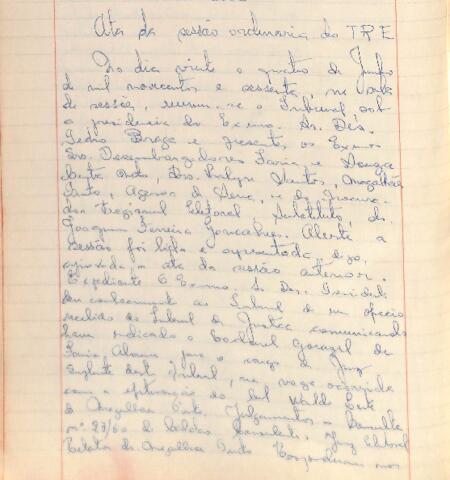 Ata da sessão ordinaria do TRE
No dia vinte e quatro de Junho
de mil novecentos e sessenta, na sala
de sessões, reuniu-se o Tribunal sob
a presidencia do Exmo. Sr. Des.
Pedro Braga e presentes os Exmos
Srs. Desembargadores Faria e Souza
Santos, Magalhães
Pinto, Agenor de Sena, e do Procura-
dor Regional Eleitoral, Substituto, dr.
Joaquim Ferreira Gonçalves. Aberta a
sessão foi lida e apresentada, digo,
aprovada, a ata da sessão anterior.
Expediente O Exmo. Sr. Des. Presidente
deu conhecimento ao Tribunal de um oficio
recebido do Tribunal de Justiça comunicando
haver indicado o Bacharel de
para o cargo de Juiz
Suplente deste Tribunal, na vaga ocorrida
com a efetivação do bel
de Magalhães Pinto. Julgamentos - Consulta
nº 83/60 de Consulente, Juiz Eleitoral
Relator dr. Magalhães Pinto